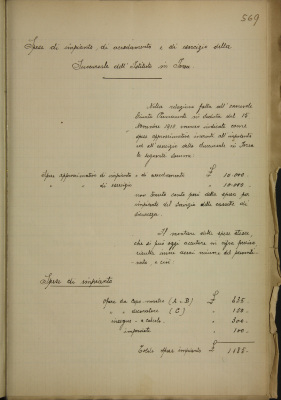 569
Spese di impianto, di arredamento e di esercizio della
Succursale dell'Istituto in
Nella relazione fatta all'onorevole
Giunta Permanente in seduta del 15
Novembre vennero indicate come
spese approssimative inerenti all'impianto
ed all'esercizio della Succursale in
le seguenti somme:
Spese approssimative di impianto e di arredamento £ 10.000.-
" " di esercizio " 10.000.-
non tenuto conto però delle spese per
impianto del servizio delle cassette di
sicurezza.
Il montare delle spese stesse,
che si può oggi accertare in cifra precisa,
risulta invece assai minore del preventi-
vato, e così:
Spese di impianto
opere da Capo-mastro (A-B) £ 635.-
" " decoratore (C) " 150.-
" 300.-
" 100.-
Totale spese impianto £ 1185.-